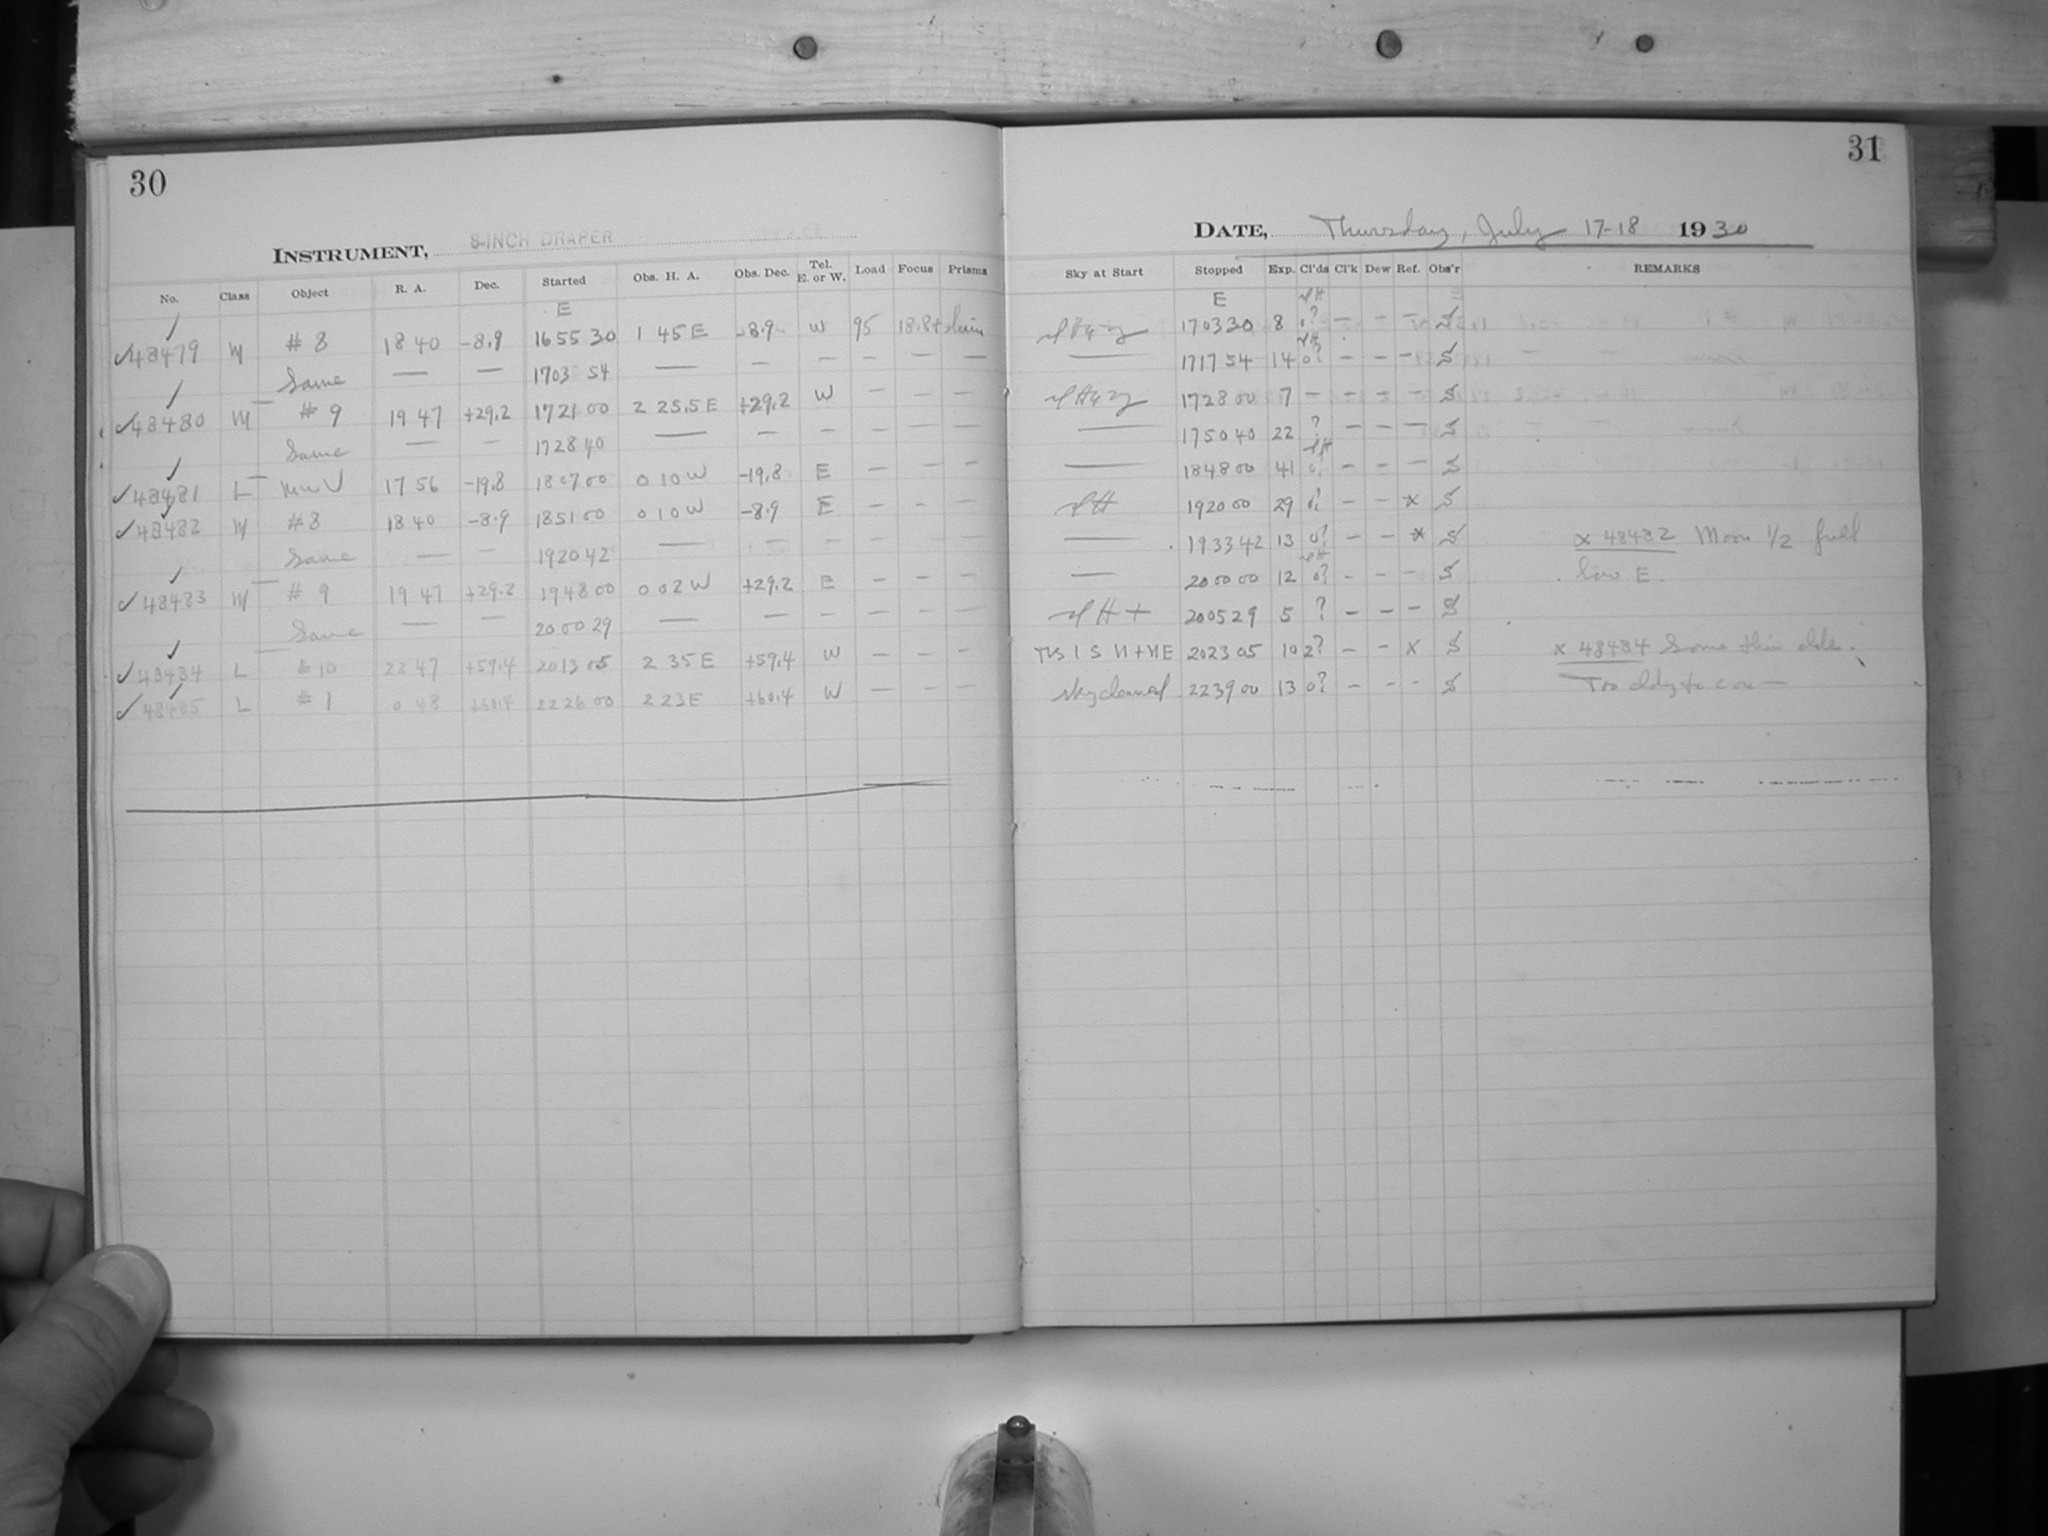 30
INSTRUMENT, 8-INCH DRAPER
No. Class Object R. A. Dec. Started Obs. H. A. Obs. Dec. Tel. E. or W. Load Focus Prisms
E
48479 M # 8 18 40 -8.9 16 55 30 1 45 E -8.9 W 95 18.8+
Same — — 1703 54 — — — — — —
48480 M # 9 19 47 +29.2 1721 00 2 25.5 E +29.2 W — — —
Same — — 1728 40 — — — — — —
48481 L 17 56 -19.8 1807 00 0 10 W -19.8 E — — —
48482 M #8 18 40 -8.9 1851 00 0 10 W -8.9 E — — —
Same — — 1920 42 — — — — — —
48483 M # 9 19 47 +29.2 1948 00 0 02 W +29.2 E — — —
Same — — 2000 29 — — — — — —
48484 L #10 22 47 +59.4 2013 05 2 35 E +59.4 W — — —
48485 L # 1 0 48 +60.4 2226 00 2 23 E +60.4 W — — —
31
DATE, Thursday, July 17-18 1930
Sky at Start Stopped Exp. Cl'ds Cl'k Dew Ref. Obs'r REMARKS
E
1703 30 8 0? — — — S
— 1717 54 14 0? — — — S
1728 00 7 — — — — S
— 1750 40 22 ? — — — S
— 1848 00 41 — — — S
1920 00 29 — — x S
— 1933 42 13 0? — — x S x 48482 Moon 1/2 full
— 2000 00 12 0? — — — S low E.
2005 29 5 ? — — — S
2023 05 10 2? — — x S x 48484 Some thin clds.
Sky cleared 2239 00 13 0? — — - S Too cldy to con—